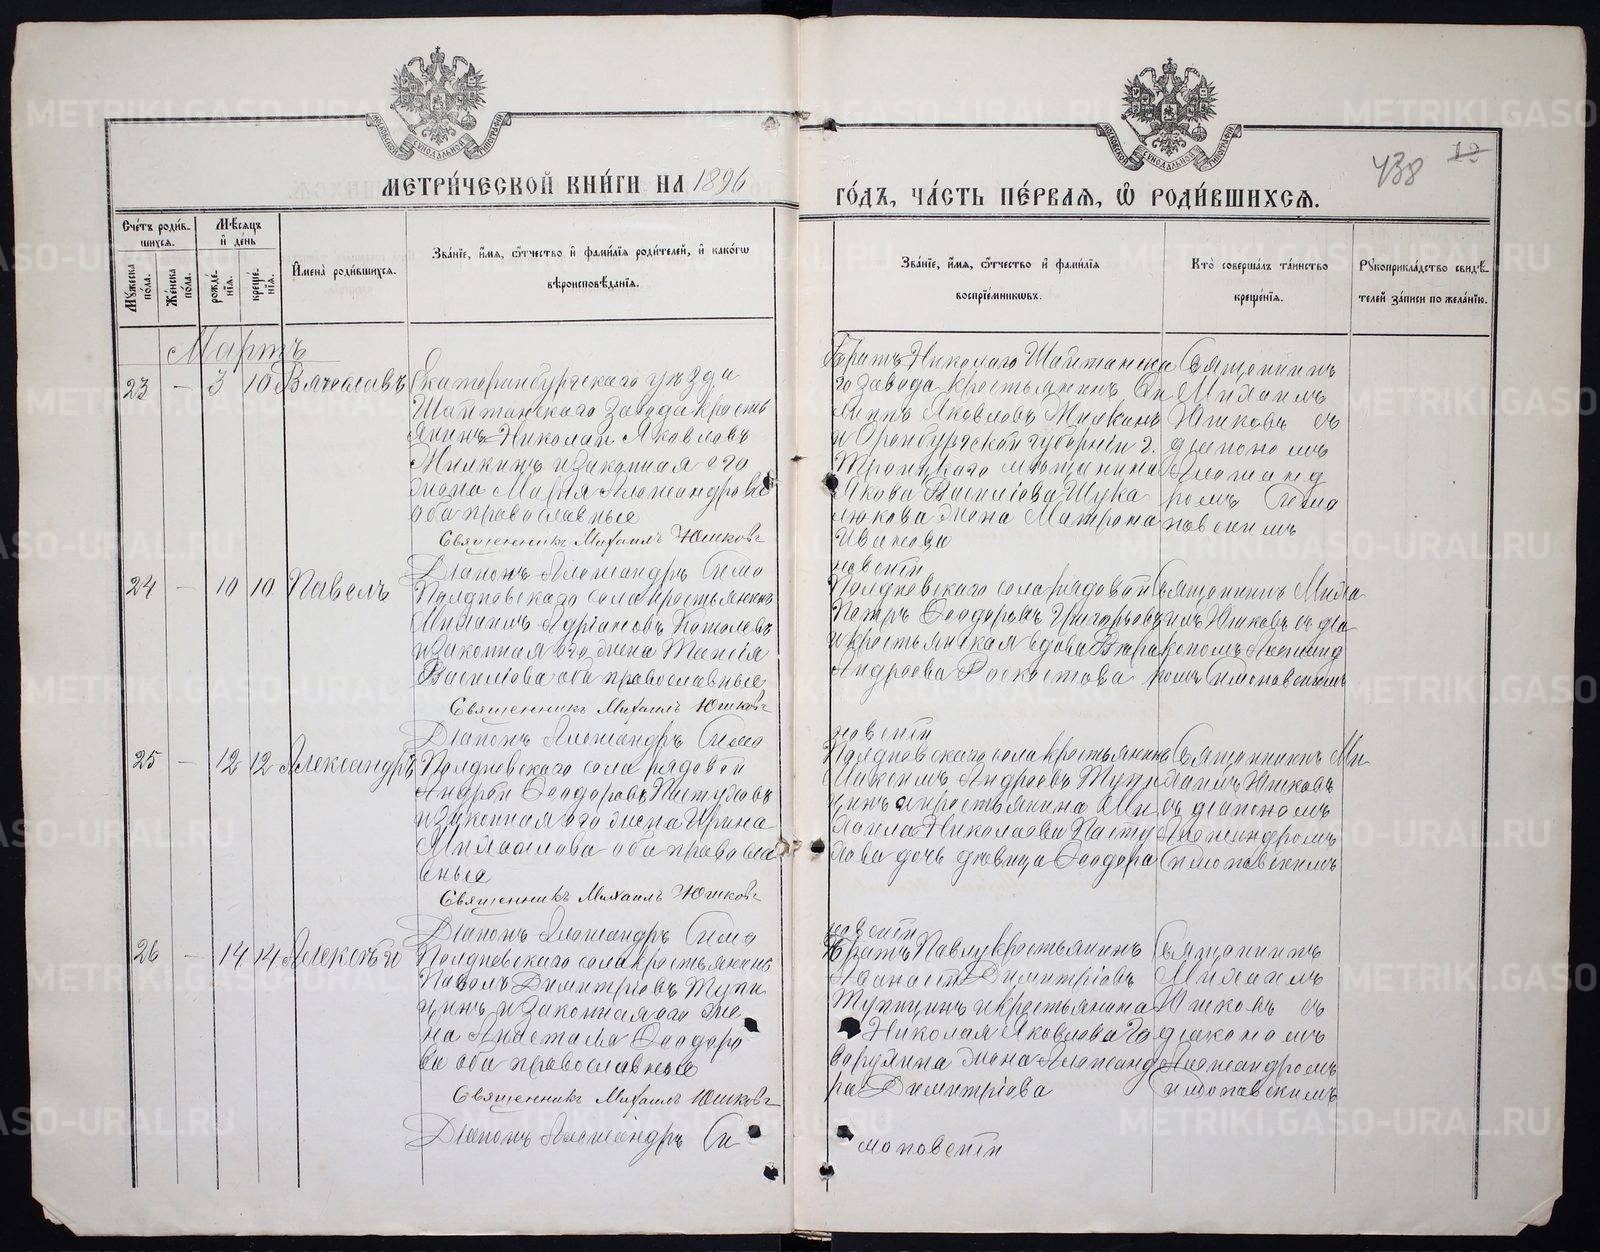 МЕТРИ́ЧЕСКОЙ КНИ́ГИ НА 1896
ГО́ДЪ, ЧА́СТЬ ПЕ́РВАЯ, Ѽ РОДИ́ВШИХСЯ.
438
12
Сче́тъ роди́в-
шихся.
Мѣ́сяцъ
и҆ де́нь
Мꙋ́жеска
по́ла.
Же́нска
по́ла.
рожде́-
нїя.
креще́-
нїя.
И҆мена̀ роди́вшихся.
Зва́нїе, и҆́мѧ, ѻ҆́тчество и҆ фами́лїѧ роди́телей, и҆ како́гѡ
вѣроисповѣ́данїя.
Зва́нїе, и҆́мѧ, ѻ҆́тчество и҆ фами́лїѧ
воспрїе́мниковъ.
Кто̀ соверша́лъ та́инство
креще́нїя.
Рꙋкоприкла́дство свидѣ́-
телей за́писи по жела́нїю.
Мартъ
23 — 3 10 Вячеславъ
Екатеринбургскаго уѣзда
Шайтанскаго завода кресть
янинъ Николай Яковлевъ
и законная его
жена Марія Александрова
оба православные
Священникъ Михаилъ Юшковъ
Діаконъ Александръ Симо
Братъ Николаго Шайтанска
го завода крестьянинъ
Яковлевъ
и Оренбургской губерніи г.
Троицкаго мѣщанина
Якова Василіева Щука
люкова жена Матрона
Иванова
новскій
Священникъ
Михаилъ
Юшковъ съ
діакономъ
Александ
ромъ Симо
новскимъ
24 — 10 10 Павелъ
Полдневскаго села крестьянинъ
Михаилъ Адріановъ
и законная его жена Таисія
Василіева оба православные
Священникъ Михаилъ Юшковъ
Діаконъ Александръ Симо
Полдневскаго села рядовой
Петръ Ѳеодоровъ Григорьевъ
и крестьянская вдова Вѣра
Андреева
новскій
Священникъ Миха
илъ Юшковъ съ діа
кономъ Александ
ромъ Симоновскимъ
25 — 12 12 Александръ
Полдневскаго села рядовой
Андрей Ѳеодоровъ Пастуховъ
и законная его жена Ирина
Михаилова оба правосла
вные
Священникъ Михаилъ Юшковъ
Діаконъ Александръ Симо
Полдневскаго села крестьянинъ
Андреевъ Тупи
цинъ и крестьянина Ми
хаила Николаева Пасту
хова дочь дѣвица Ѳеодора
новскій
Священникъ Ми
хаилъ Юшковъ
съ діакономъ
Александромъ
Симоновскимъ
26 — 14 14 Алексѣй
Полдневскаго села крестьянинъ
Павелъ Димитріевъ Тупи
цинъ и законная его же
на Анастасія Ѳеодоро
ва оба православные
Священникъ Михаилъ Юшковъ
Діаконъ Александръ Си
Братъ Павлу крестьянинъ
Аѳанасій Димитріевъ
Тупицинъ и крестьянина
Николая Яковлева Го
ворухина жена Александ
ра Димитріева
моновскій
Священникъ
Михаилъ
Юшковъ съ
діакономъ
Александромъ
Симоновскимъ